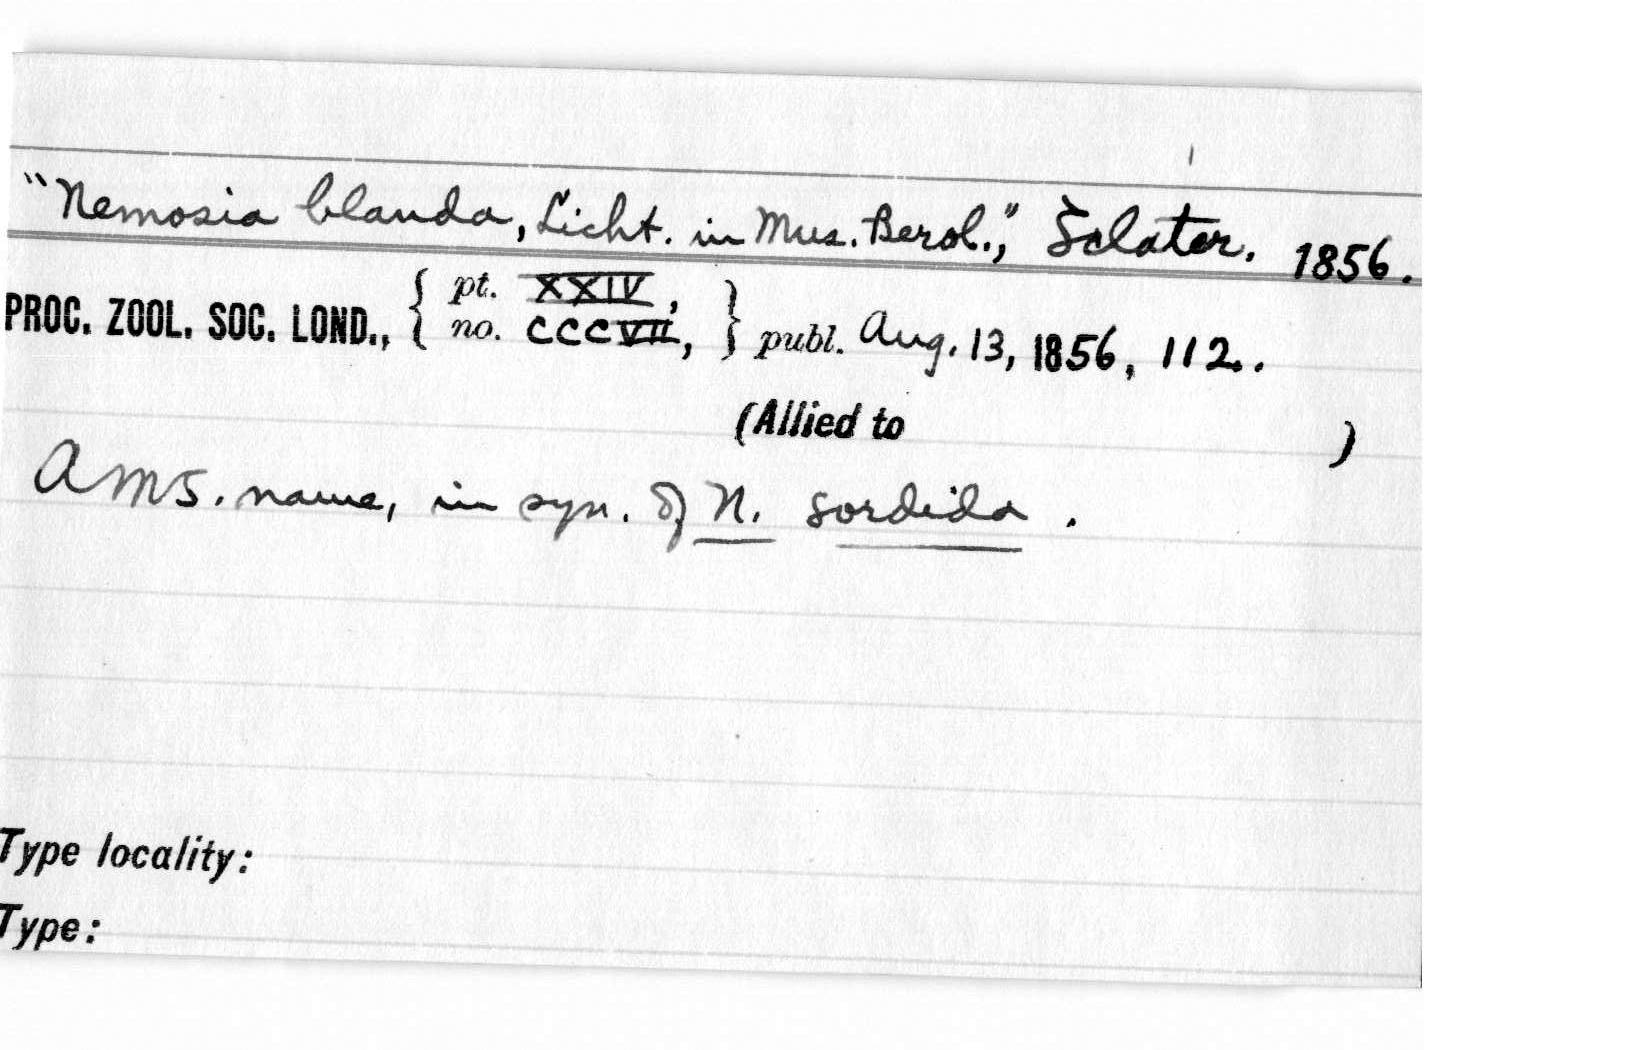 "Nemosia blanda, Licht. in Mus. Berol.," Sclater. 1856.
PROC. ZOOL. SOC. LOND., { pt. XXIV, no. CCCVII, } publ. Aug. 13, 1856, 112..
(Allied to )
A MS. name, in syn. of N. sordida.
Type locality:
Type: